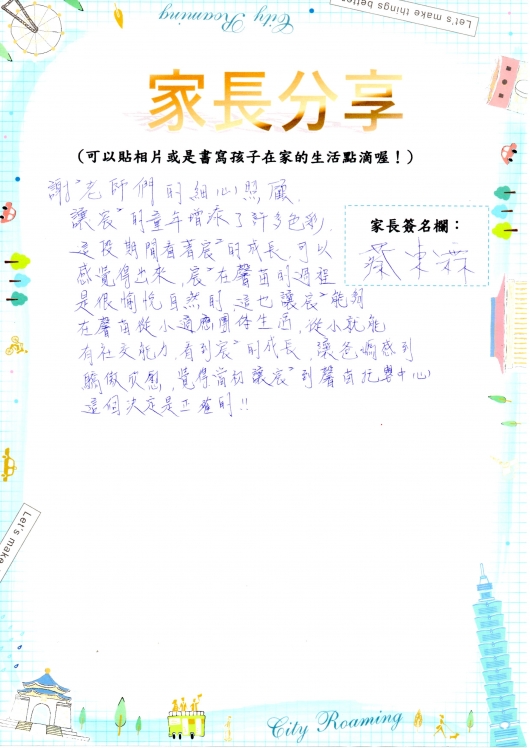 City Roaming
Let's make things better
家長分享
(可以貼相片或是書寫孩子在家的生活點滴喔！)
謝謝老師們的細心照顧，
讓宸宸的童年增添了許多色彩，
家長簽名欄：
這段期間看著宸宸的成長，可以
感覺得出來，宸宸在馨苗的過程
是很愉悅自然的，這也讓宸宸能夠
在馨苗從小適應團体生活，從小就能
有社交能力，看到宸宸的成長，讓爸媽感到
驕傲欣慰，覺得當初讓宸宸到馨苗托嬰中心
這個決定是正確的!!
Let's make
City Roaming